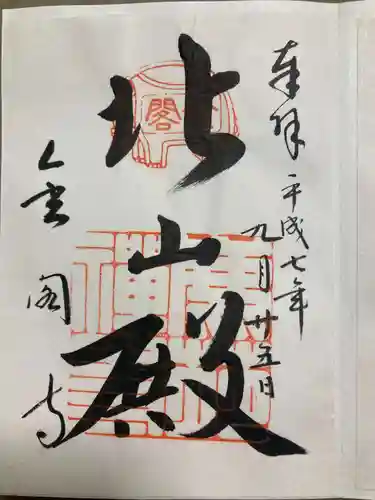 奉拝 平成七年
九月廿五日
北山殿
金閣寺
閣